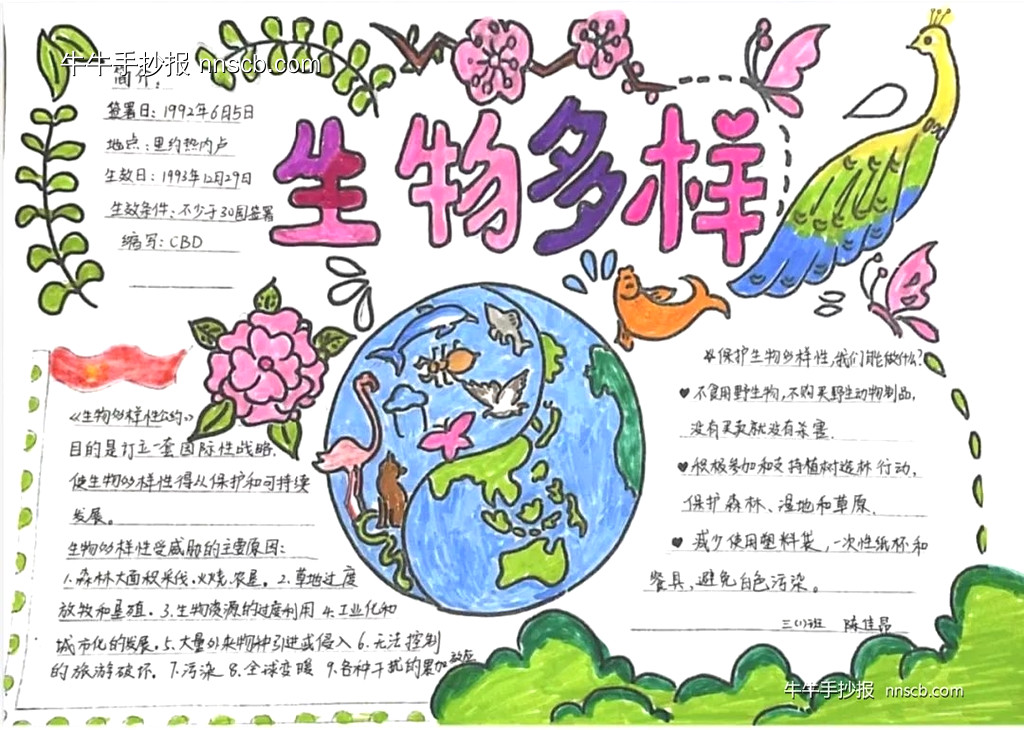 牛牛手抄报 nnscb.com
简介:
签署日:1992年6月5日
地点:里约热内卢
生效日:1993年12月29日
生效条件:不少于30国签署
缩写:CBD
生物多样
《生物多样性公约》
目的是订立一套国际性战略,
使生物多样性得从保护和可持续
发展。
生物多样性受威胁的主要原因:
1.森林大面积采伐、火烧、农垦。2.草地过度
放牧和垦殖。3.生物资源的过度利用 4.工业化和
城市化的发展。5.大量外来物种引进或侵入 6.无法控制
的旅游破坏。7.污染 8.全球变暖 9.各种干扰的累加效应
保护生物多样性,我们能做什么?
♥不食用野生物,不购买野生动物制品,
没有买卖就没有杀害.
♥积极参加和支持植树造林行动,
保护森林、湿地和草原.
♥ 减少使用塑料袋,一次性纸杯和
餐具,避免白色污染。
三(1)班 陈佳昂
牛牛手抄报 nnscb.com